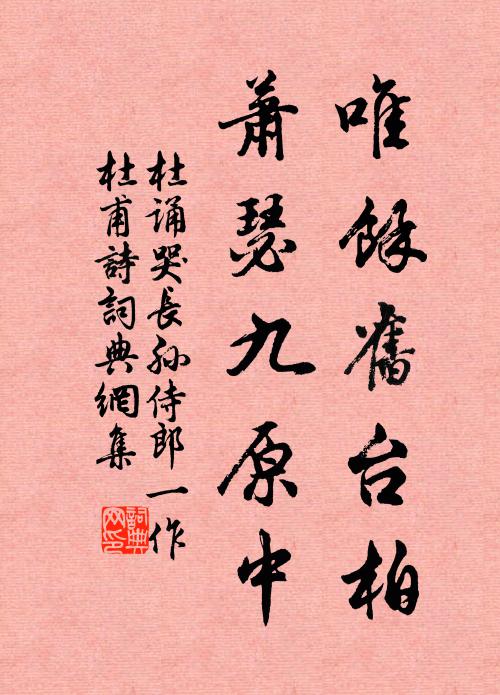 唯餘舊台柏
蕭瑟九原中
杜诵哭長孙侍郎一作
杜甫詩詞典網集
詞典网印